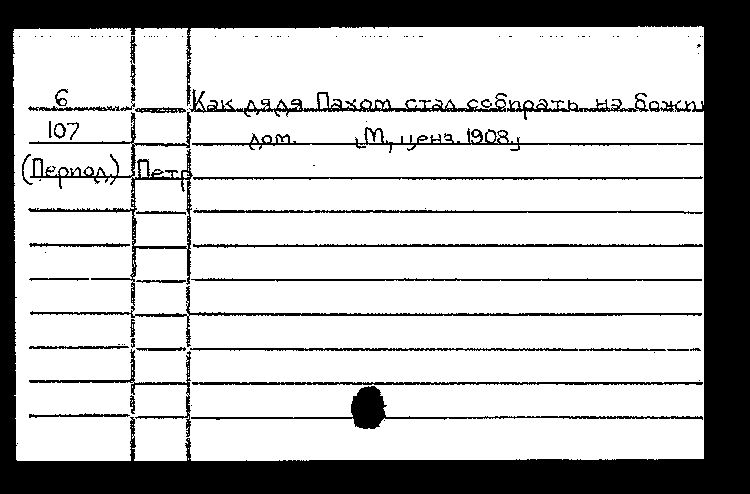 6 Как дядя Пахом стал собирать на божи
107 дом. [М., ценз. 1908.]
(Период.) Петр